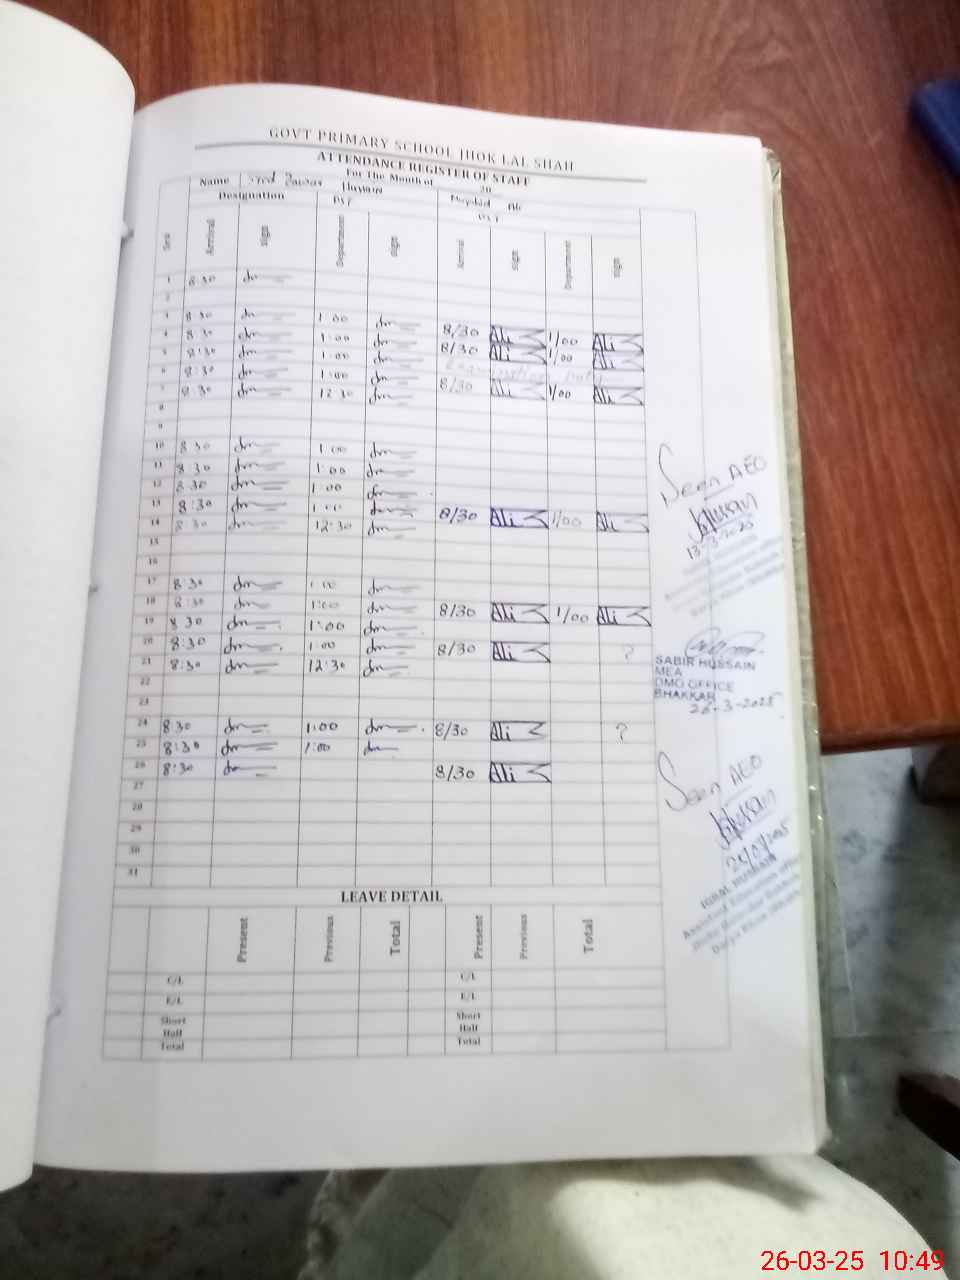 GOVT PRIMARY SCHOOL JHOK LAL SHAH
ATTENDANCE REGISTER OF STAFF
For The Month of 20
Name Ali
Designation PST PST
Arrival sign Department sign Arrival sign Department sign
1 8:30
2
3 8:30 1:00
4 8:30 1:00 8/30 Ali 1/00 Ali
5 8:30 1:00 8/30 Ali 1/00 Ali
6 8:30 1:00 Examination Duty
7 8:30 12:30 8/30 Ali 1/00 Ali
8
9
10 8:30 1:00
11 8:30 1:00
12 8:30 1:00
13 8:30 1:00
14 8:30 12:30 8/30 Ali 1/00 Ali
15
16
17 8:30 1:00
18 8:30 1:00 8/30 Ali 1/00 Ali
19 8:30 1:00
20 8:30 1:00 8/30 Ali ?
21 8:30 12:30
22
23
24 8:30 1:00 8/30 Ali ?
25 8:30 1:00
26 8:30 8/30 Ali
27
28
29
30
31
Seen AEO
13-3-2025
SABIR HUSSAIN
MEA
DMO OFFICE
BHAKKAR
26-3-2025
Seen AEO
IQBAL HUSSAIN
Assistant Education Officer
LEAVE DETAIL
Present Previous Total Present Previous Total
C/L C/L
E/L E/L
Short Short
Half Half
Total Total
26-03-25 10:49